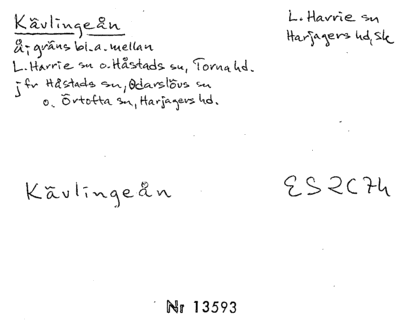 Kävlingeån
L. Harrie sn
Harjagers hd, Sk
Å; gräns bl.a. mellan
L. Harrie sn o. Håstads sn, Torna hd.
jfr Håstads sn, Odarslövs sn
o. Örtofta sn, Harjagers hd.
Kävlingeån
ES2C7h
Nr 13593